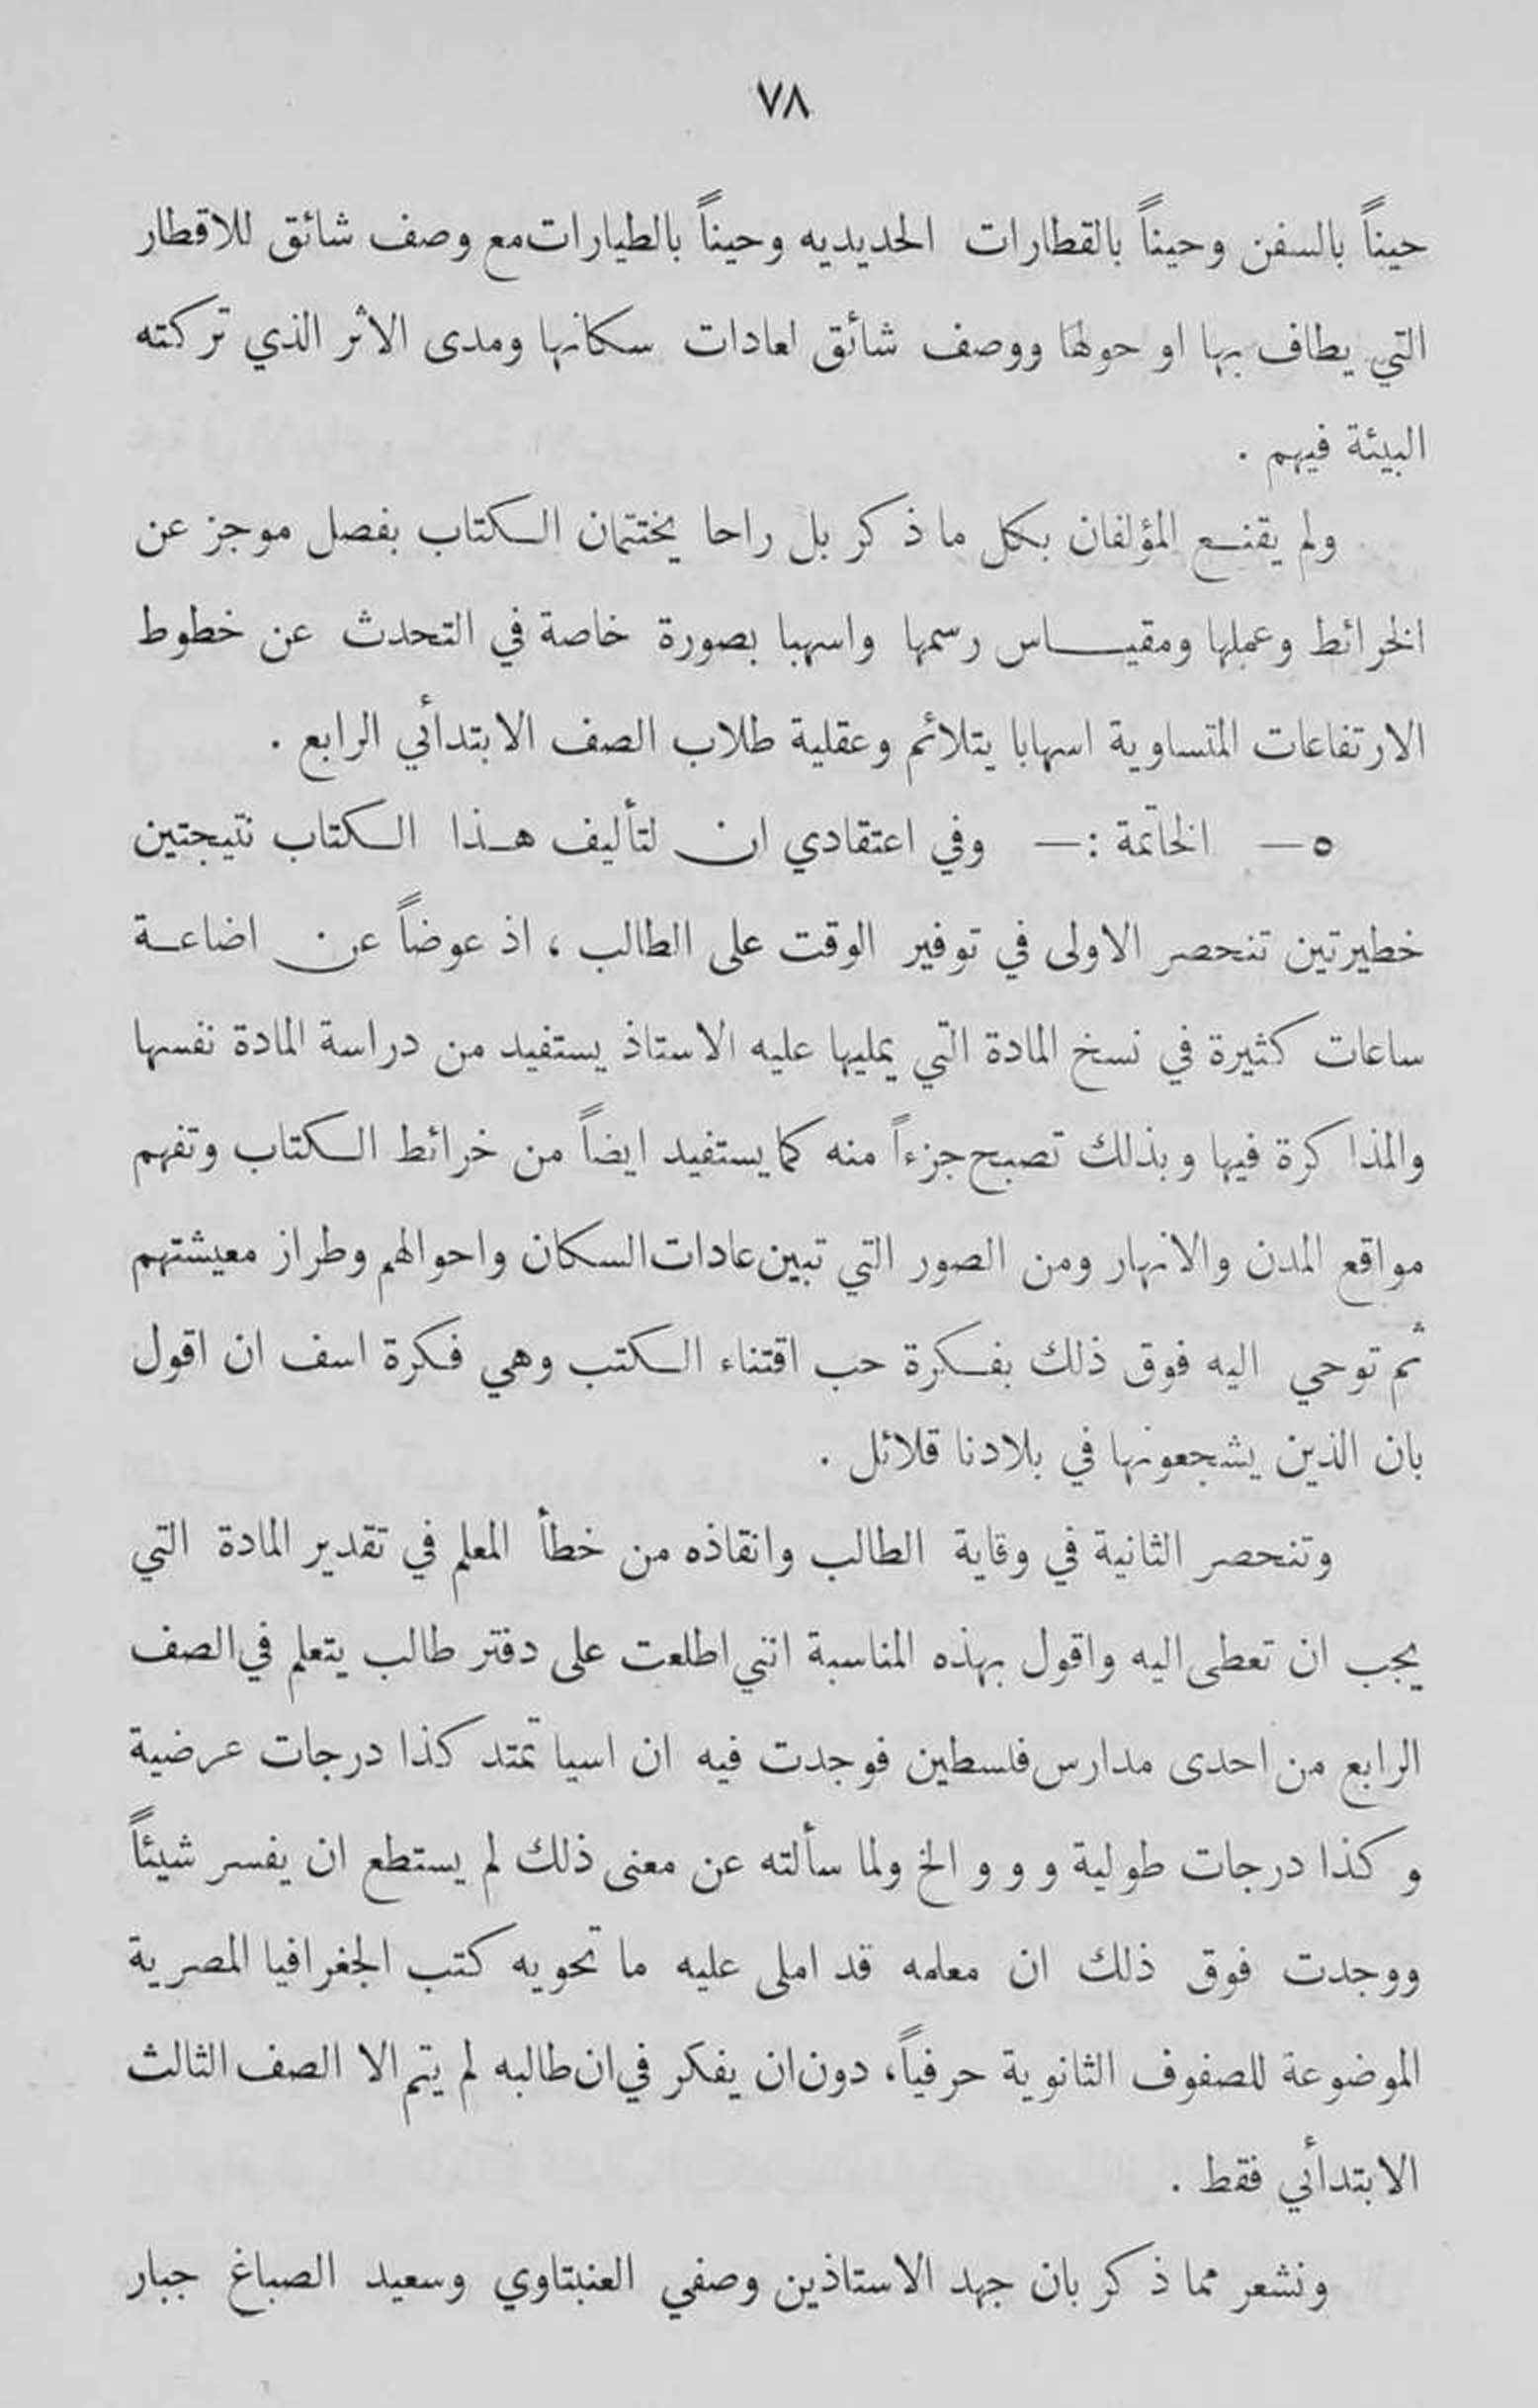 ٧٨
حيناً بالسفن وحيناً بالقطارات الحديديه وحيناً بالطيارات مع وصف شائق للاقطار
التي يطاف بها او حولها ووصف شائق لعادات سكانها ومدى الاثر الذي تركته
البيئة فيهم .
ولم يقنع المؤلفان بكل ما ذكر بل راحا يختتمان الكتاب بفصل موجز عن
الخرائط وعملها ومقياس رسمها واسهبا بصورة خاصة في التحدث عن خطوط
الارتفاعات المتساوية اسهابا يتلائم وعقلية طلاب الصف الابتدأئي الرابع .
٥ — الخاتمة : — وفي اعتقادي ان لتأليف هذا الكتاب نتيجتين
خطيرتين تنحصر الاولى في توفير الوقت على الطالب ، اذ عوضاً عن اضاعة
ساعات كثيرة في نسخ المادة التي يمليها عليه الاستاذ يستفيد من دراسة المادة نفسها
والمذاكرة فيها وبذلك تصبح جزءاً منه كما يستفيد ايضاً من خرائط الكتاب وتفهم
مواقع المدن والانهار ومن الصور التي تبين عادات السكان واحوالهم وطراز معيشتهم
ثم توحي اليه فوق ذلك بفكرة حب اقتناء الكتب وهي فكرة اسف ان اقول
بان الذين يشجعونها في بلادنا قلائل .
وتنحصر الثانية في وقاية الطالب وانقاذه من خطأ المعلم في تقدير المادة التي
يجب ان تعطى اليه واقول بهذه المناسبة انني اطلعت على دفتر طالب يتعلم في الصف
الرابع من احدى مدارس فلسطين فوجدت فيه ان اسيا تمتد كذا درجات عرضية
وكذا درجات طولية و و و الخ ولما سألته عن معنى ذلك لم يستطع ان يفسر شيئاً
ووجدت فوق ذلك ان معلمه قد املى عليه ما تحويه كتب الجغرافيا المصرية
الموضوعة للصفوف الثانوية حرفياً، دون ان يفكر في ان طالبه لم يتم الا الصف الثالث
الابتدأئي فقط .
ونشعر مما ذكر بان جهد الاستاذين وصفي العنبتاوي وسعيد الصباغ جبار